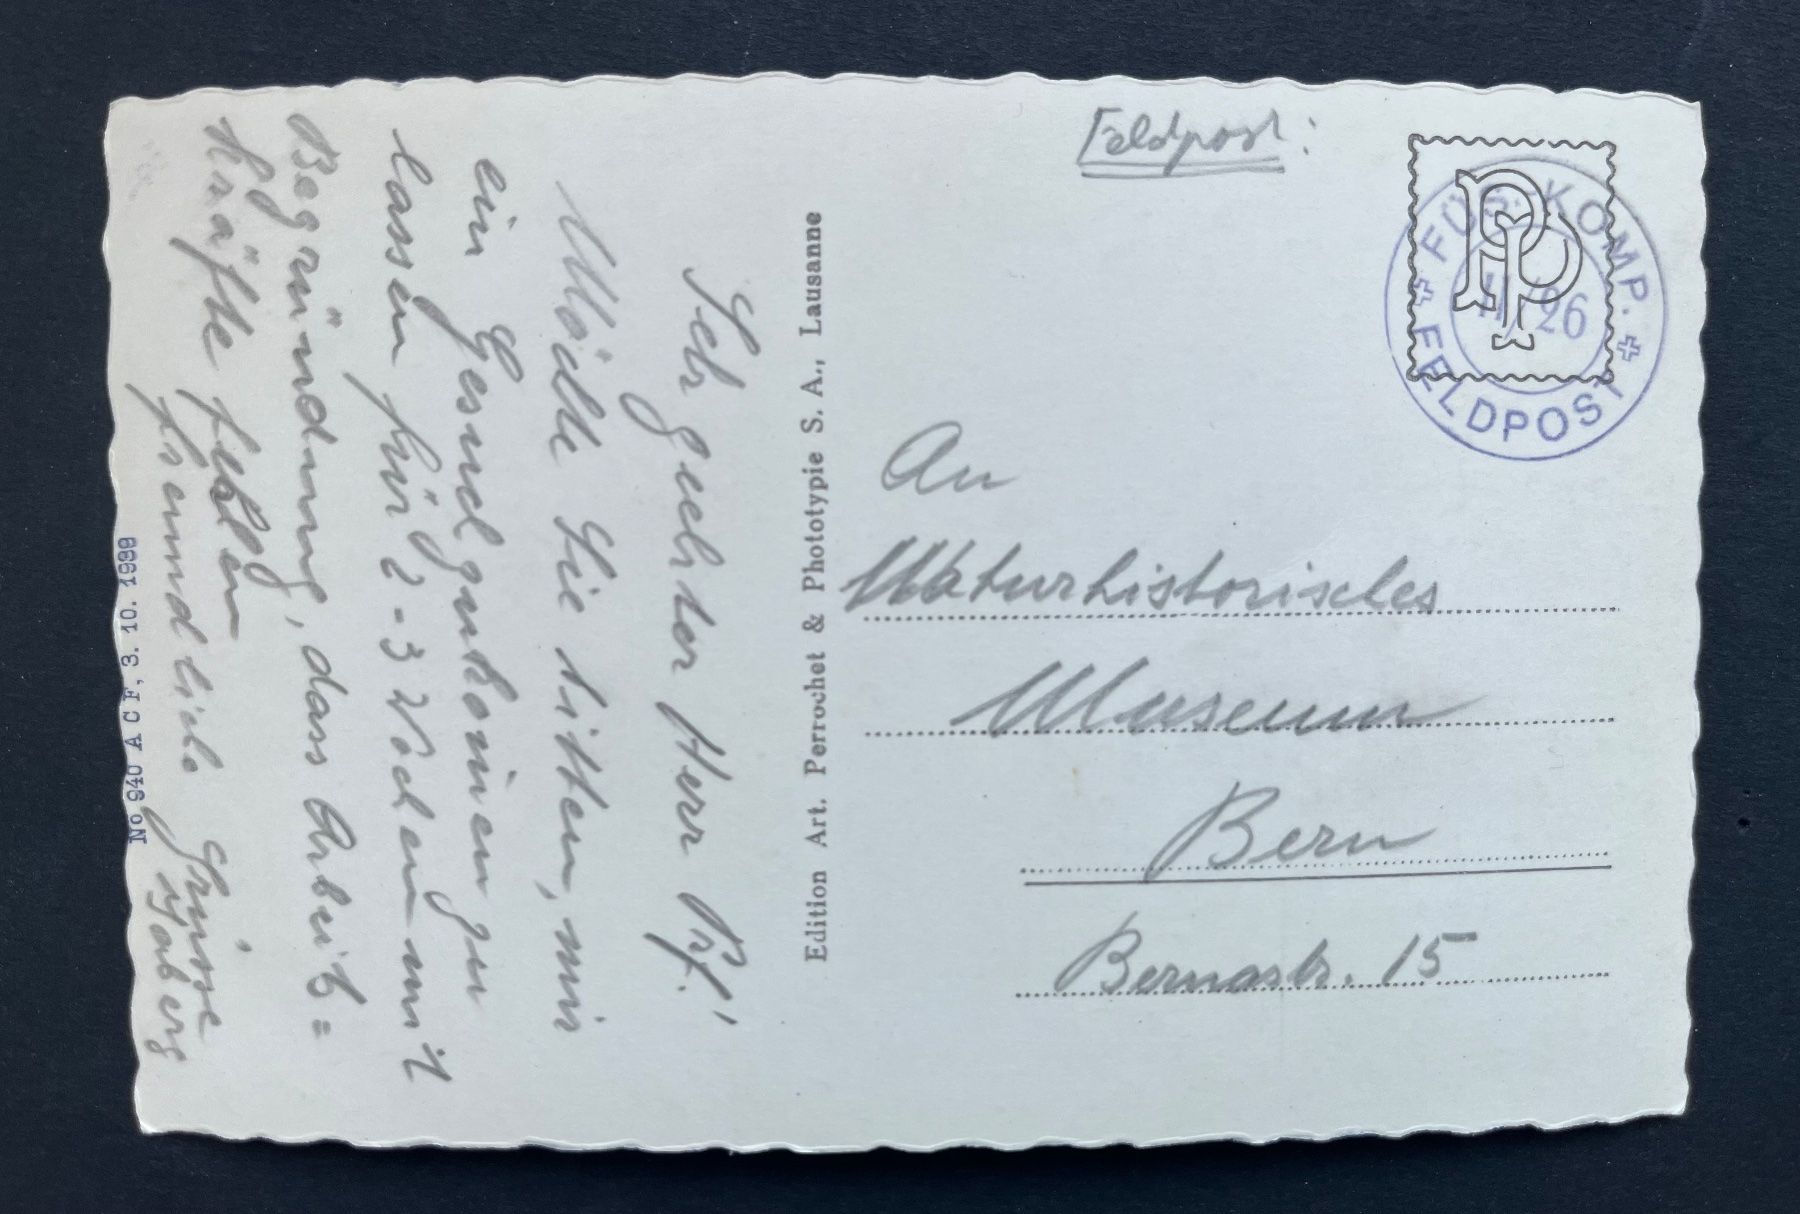 Sehr geehrter Herr Prf.!
Möchte Sie bitten, mir
ein Gesuch zukommen zu
lassen für 2-3 Wochen mit
Begründung, dass Arbeit=
kräfte fehlen
freundliche Grüsse
No 940 A C F, 3. 10. 1939
Edition Art. Perrochet & Phototypie S. A., Lausanne
Feldpost:
PP
FÜS.-KOMP.
/26
FELDPOST
An
Naturhistorisches
Museum
Bern
Bernastr. 15